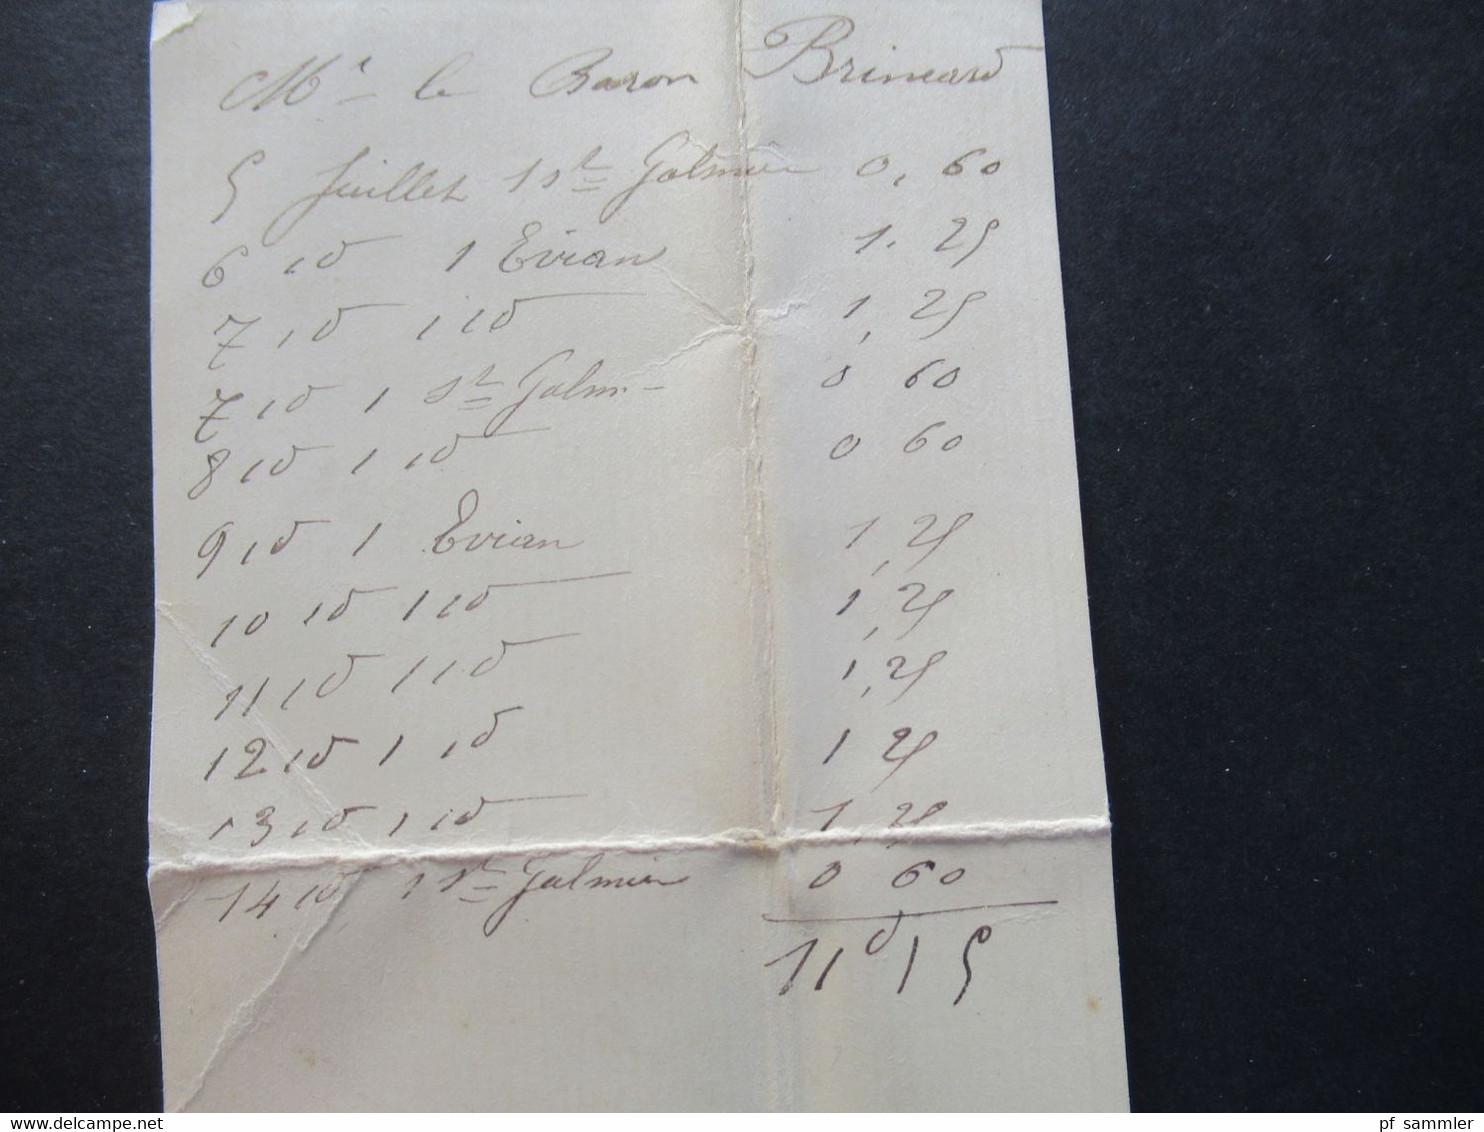 Mr le Baron Brincard
5 Juillet 1 St Galmier 0,60
6 id 1 Evian 1.25
7 id 1 id 1,25
7 id 1 St Galm 0 60
8 id 1 id 0 60
9 id 1 Evian 1,25
10 id 1 id 1,25
11 id 1 id 1,25
12 id 1 id 1 25
13 id 1 id 1,25
14 id 1 St Galmier 0 60
11 15
pf sammler
www.delcampe.net